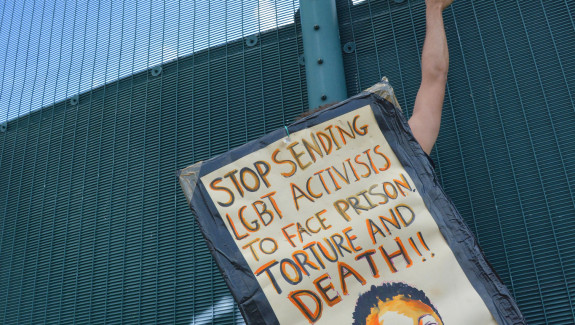 STOP SENDING
LGBT ACTIVISTS
TO FACE PRISON,
TORTURE AND
DEATH!!